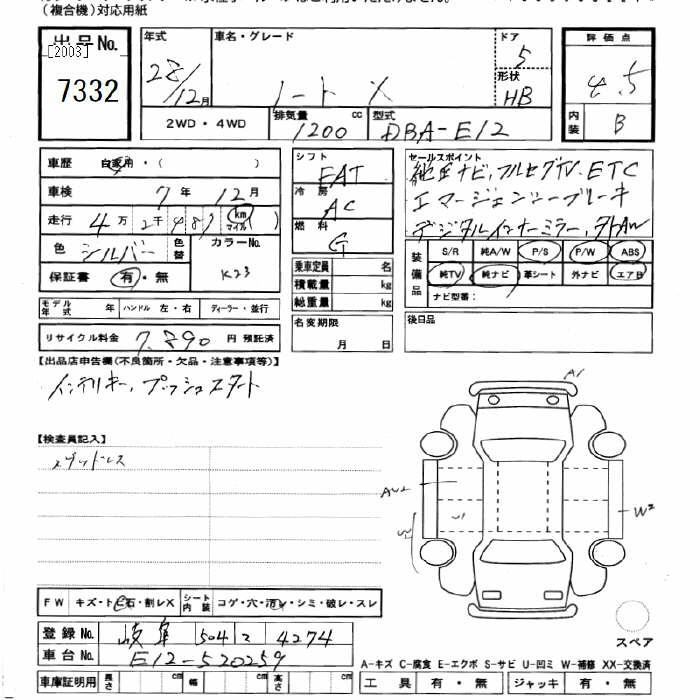 （複合機）対応用紙
出品No.
［2003］
7332
年式
28/12月
車名・グレード
ノート X
ドア
5
形状
HB
評価点
4.5
内装
B
2WD・4WD
排気量
1200 cc
型式
DBA-E12
車歴 自家用・（ ）
車検 7年 12月
走行 4万2千487 km マイル ）
色 シルバー 色替
カラーNo.
K23
保証書 有・無
シフト
FAT
冷房
AC
燃料
G
乗車定員 名
積載量 kg
総重量 kg
セールスポイント
純正ナビ、フルセグTV、ETC
エマージェンシーブレーキ
デジタルインナーミラー、外AW
装備品
S/R 純A/W P/S P/W ABS
純TV 純ナビ 革シート 外ナビ エアB
ナビ型番：
モデル年式 年 ハンドル 左・右 ディーラー・並行
リサイクル料金 7,890 円 預託済
名変期限
月 日
後日品
【出品店申告欄（不良箇所・欠品・注意事項等）】
インテリキー、プッシュスタート
【検査員記入】
スペアレス
A1
AU2
W2
FW キズ・トビ石・割レX シート内装 コゲ・穴・汚レ・シミ・破レ・スレ
登録No. 岐阜 504 4274
車台No. E12-520259
スペア
A-キズ C-腐食 E-エクボ S-サビ U-凹ミ W-補修 XX-交換済
車庫証明用 長さ cm 幅 cm 高さ cm
工具 有・無 ジャッキ 有・無